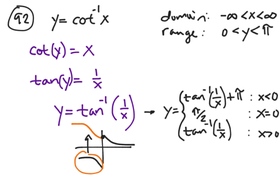 Q2 y = cot⁻¹ x
domain: -∞ < x < ∞
range: 0 < y < π
cot(y) = x
tan(y) = 1/x
y = tan⁻¹(1/x) → y = { tan⁻¹(1/x) + π : x < 0
π/2 : x = 0
tan⁻¹(1/x) : x > 0